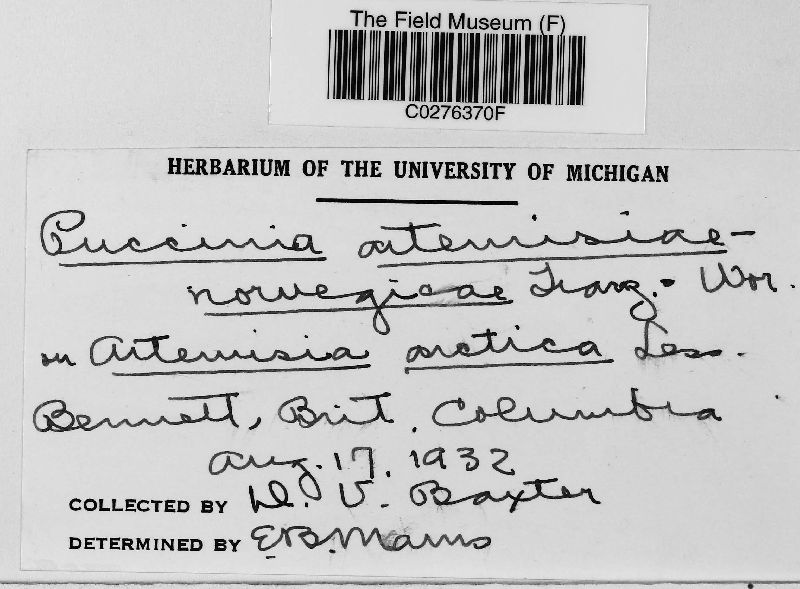 The Field Museum (F)
C0276370F
HERBARIUM OF THE UNIVERSITY OF MICHIGAN
Puccinia artemisiae-
norvegicae Tranz. - Wor.
on Artemisia arctica Less.
Bennett, Brit. Columbia
Aug. 17, 1932
COLLECTED BY D. V. Baxter
DETERMINED BY E.B. Mains